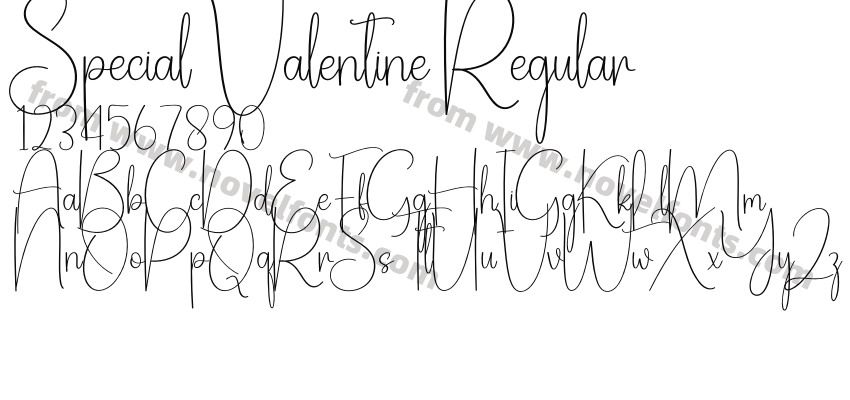 Special Valentine Regular
1234567890
AaBbCcDdEeFfGgHhIiGgKkLlMm
NnOoPpQqRrSsTtUuVvWwXxYyZz
from www.novelfonts.com
from www.novelfonts.com